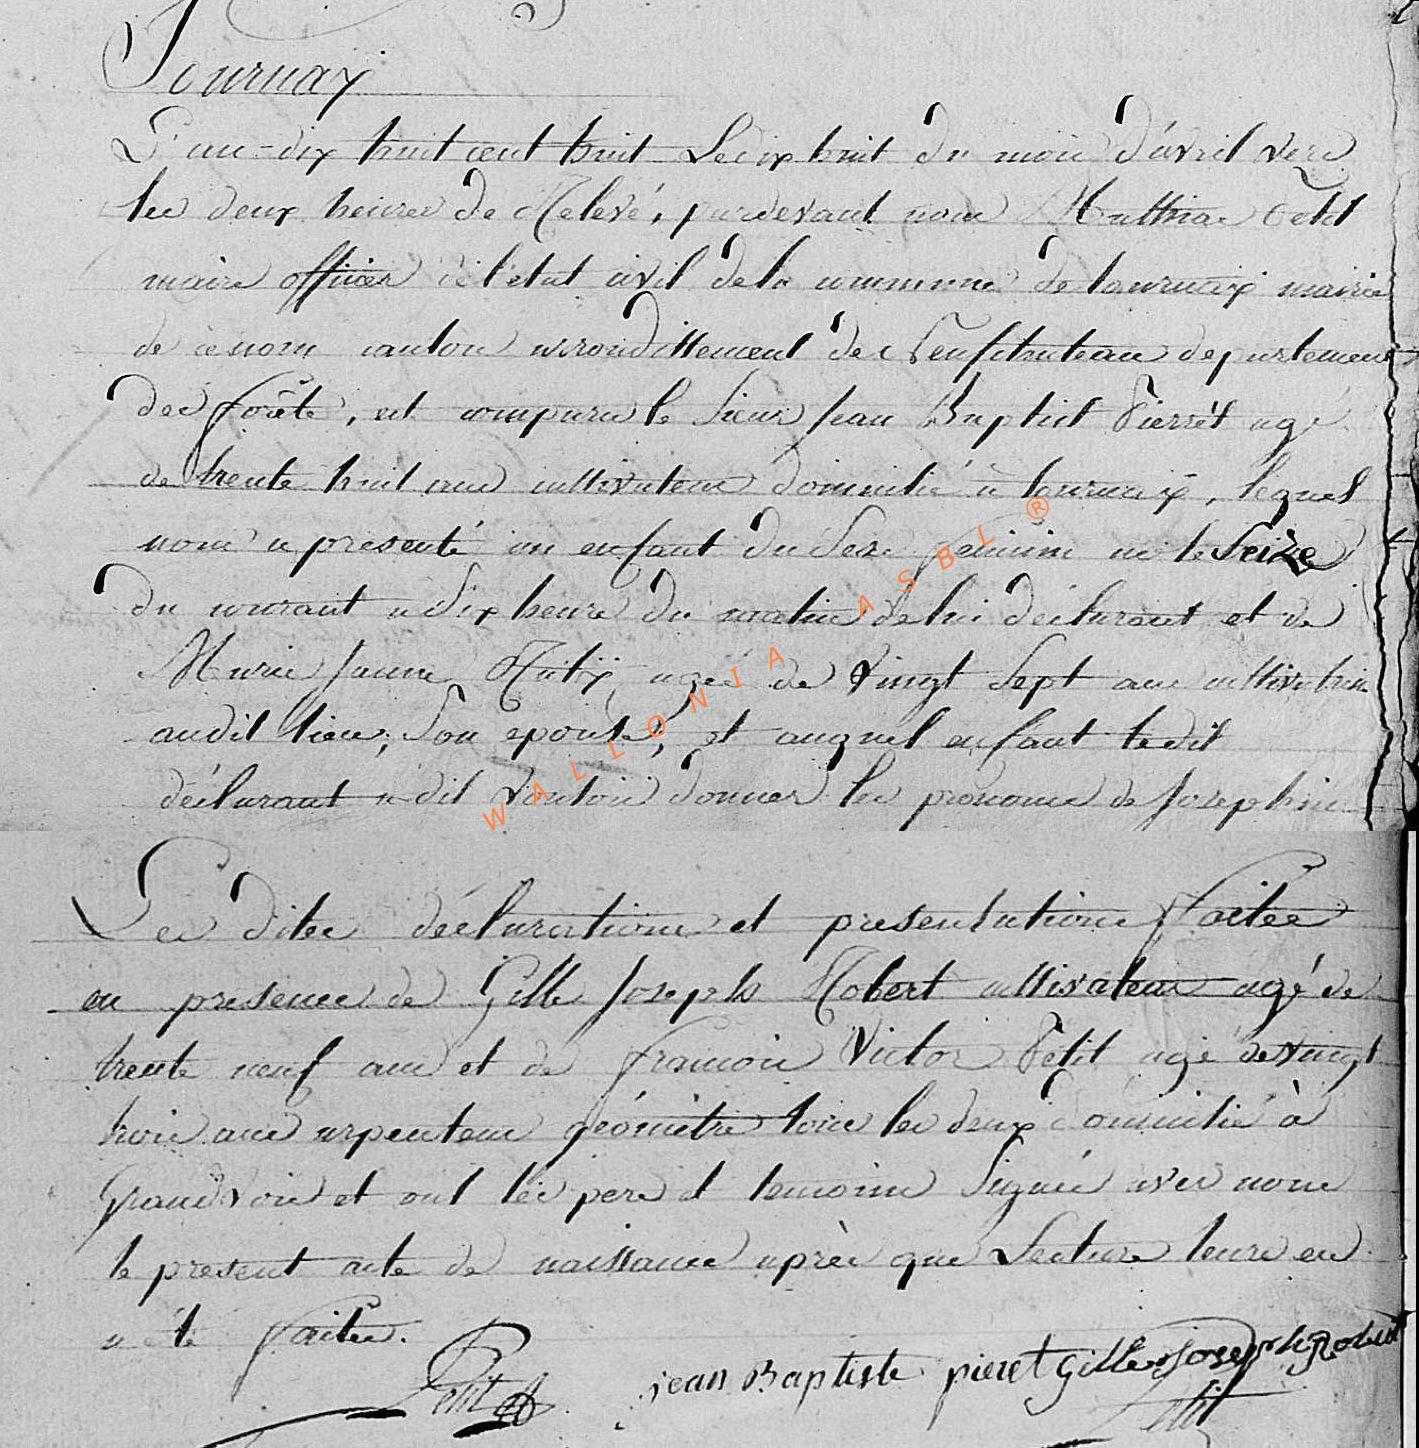 Tournay
L'an dix huit cent huit Le dix huit du mois d'avril vers
les deux heures de Relevé, pardevant nous Mathias Petit
maire officier de l'etat civil de la commune de tournaix mairie
de ce nom canton arrondissement de Neufchateau departement
des forêts, est comparu le Sieur Jean Baptist Pierrèt agé
de trente huit ans cultivateur domicilié à tournaix, lequel
nous a présenté un enfant du Sexe feminin né le Seize
du courant a dix heures du matin de lui déclarant et de
Marie Janne agée de Vingt Sept ans cultivatrice
audit lieu, Son epouse, et auquel enfant ledit
déclarant a dit vouloir donner les prénoms de Josephine
Les dites déclarations et presentations faites
en presence de Gille Joseph Robert cultivateur agé de
trente neuf ans et de francois Victor Petit agé de vingt
trois ans arpenteur géomètre tous les deux domicilié à
Grandvoir et ont les pere et temoins Signés avec nous
le present acte de naissance après que Lecture leurs en
a été faites.
Petit jean Baptiste pieret Gille Joseph Robert
Petit
WALLONIA ASBL ®